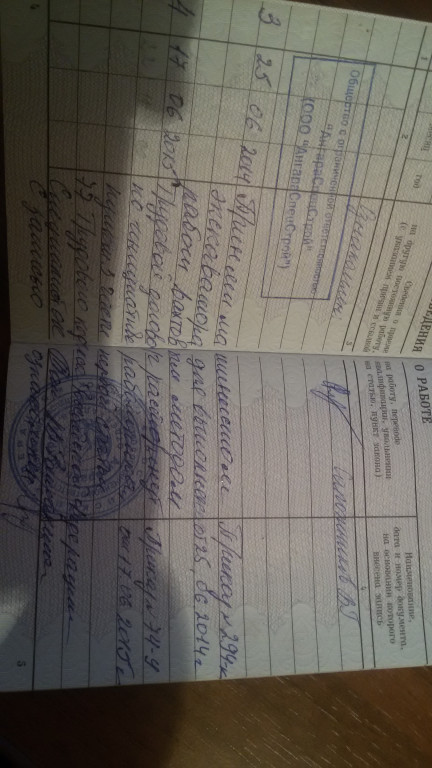 СВЕДЕНИЯ О РАБОТЕ
месяц
год
Сведения о приеме на работу, переводе
на другую постоянную работу, квалификации, увольнении
(с указанием причин и ссылкой на статью, пункт закона)
Наименование,
дата и номер документа,
на основании которого
внесена запись
1 2 3 4
Общество с ограниченной ответственностью
"АнгараСпецСтрой"
(ООО "АнгараСпецСтрой")
3 25 06 2014 Принят на машинистом Приказ № 294-к
экскаватора для выполнения от 25.06.2014 г
работ вахтовым методом
4 17 06 2015 Трудовой договор расторгнут Приказ № 74-у
по инициативе работника от 17.06.2015 г
пункт 3 части первой статьи
77 Трудового кодекса Российской Федерации
С записью ознакомлен
5